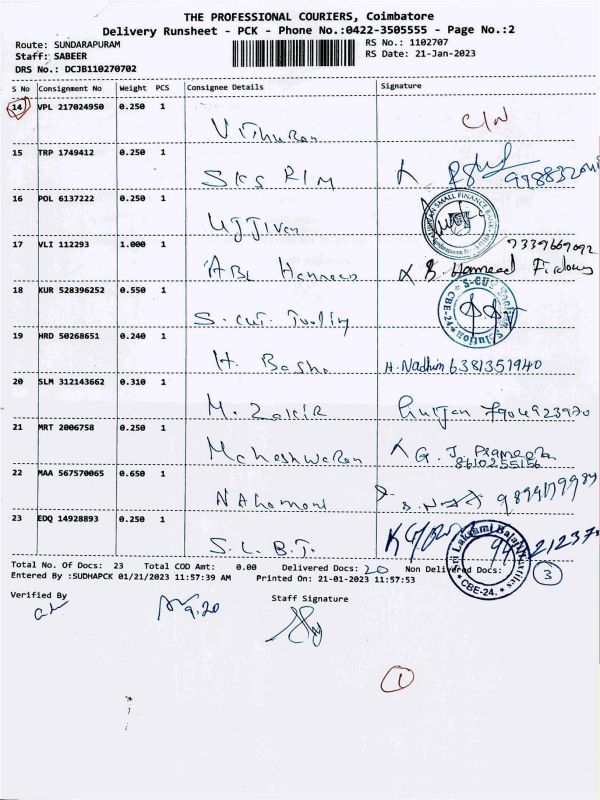 THE PROFESSIONAL COURIERS, Coimbatore
Delivery Runsheet - PCK - Phone No.:0422-3505555 - Page No.:2
Route: SUNDARAPURAM RS No.: 1102707
Staff: SABEER RS Date: 21-Jan-2023
DRS No.: DCJB110270702
S No Consignment No Weight PCS Consignee Details Signature
14 VPL 217024950 0.250 1
Vithuran C/N
15 TRP 1749412 0.250 1
SKS RIM
16 POL 6137222 0.250 1
Ujjivan
17 VLI 112293 1.000 1 9339669092
ABL Hameed B. Hameed Firdous
18 KUR 528396252 0.550 1 S-CUT CBE-24
S. CUT. Tooling
19 HRD 50268651 0.240 1
H. Basha H. Nadhim 6381351940
20 SLM 312143662 0.310 1
M. Zakir 7904923970
21 MRT 2006758 0.250 1
Maheshwaran G. J. Prameela
8610255156
22 MAA 567570065 0.650 1
23 EDQ 14928893 0.250 1
S. L. B. T. CBE-24.
Total No. Of Docs: 23 Total COD Amt: 0.00 Delivered Docs: 20 Non Delivered Docs: 3
Entered By :SUDHAPCK 01/21/2023 11:57:39 AM Printed On: 21-01-2023 11:57:53
Verified By Staff Signature
9.20
1